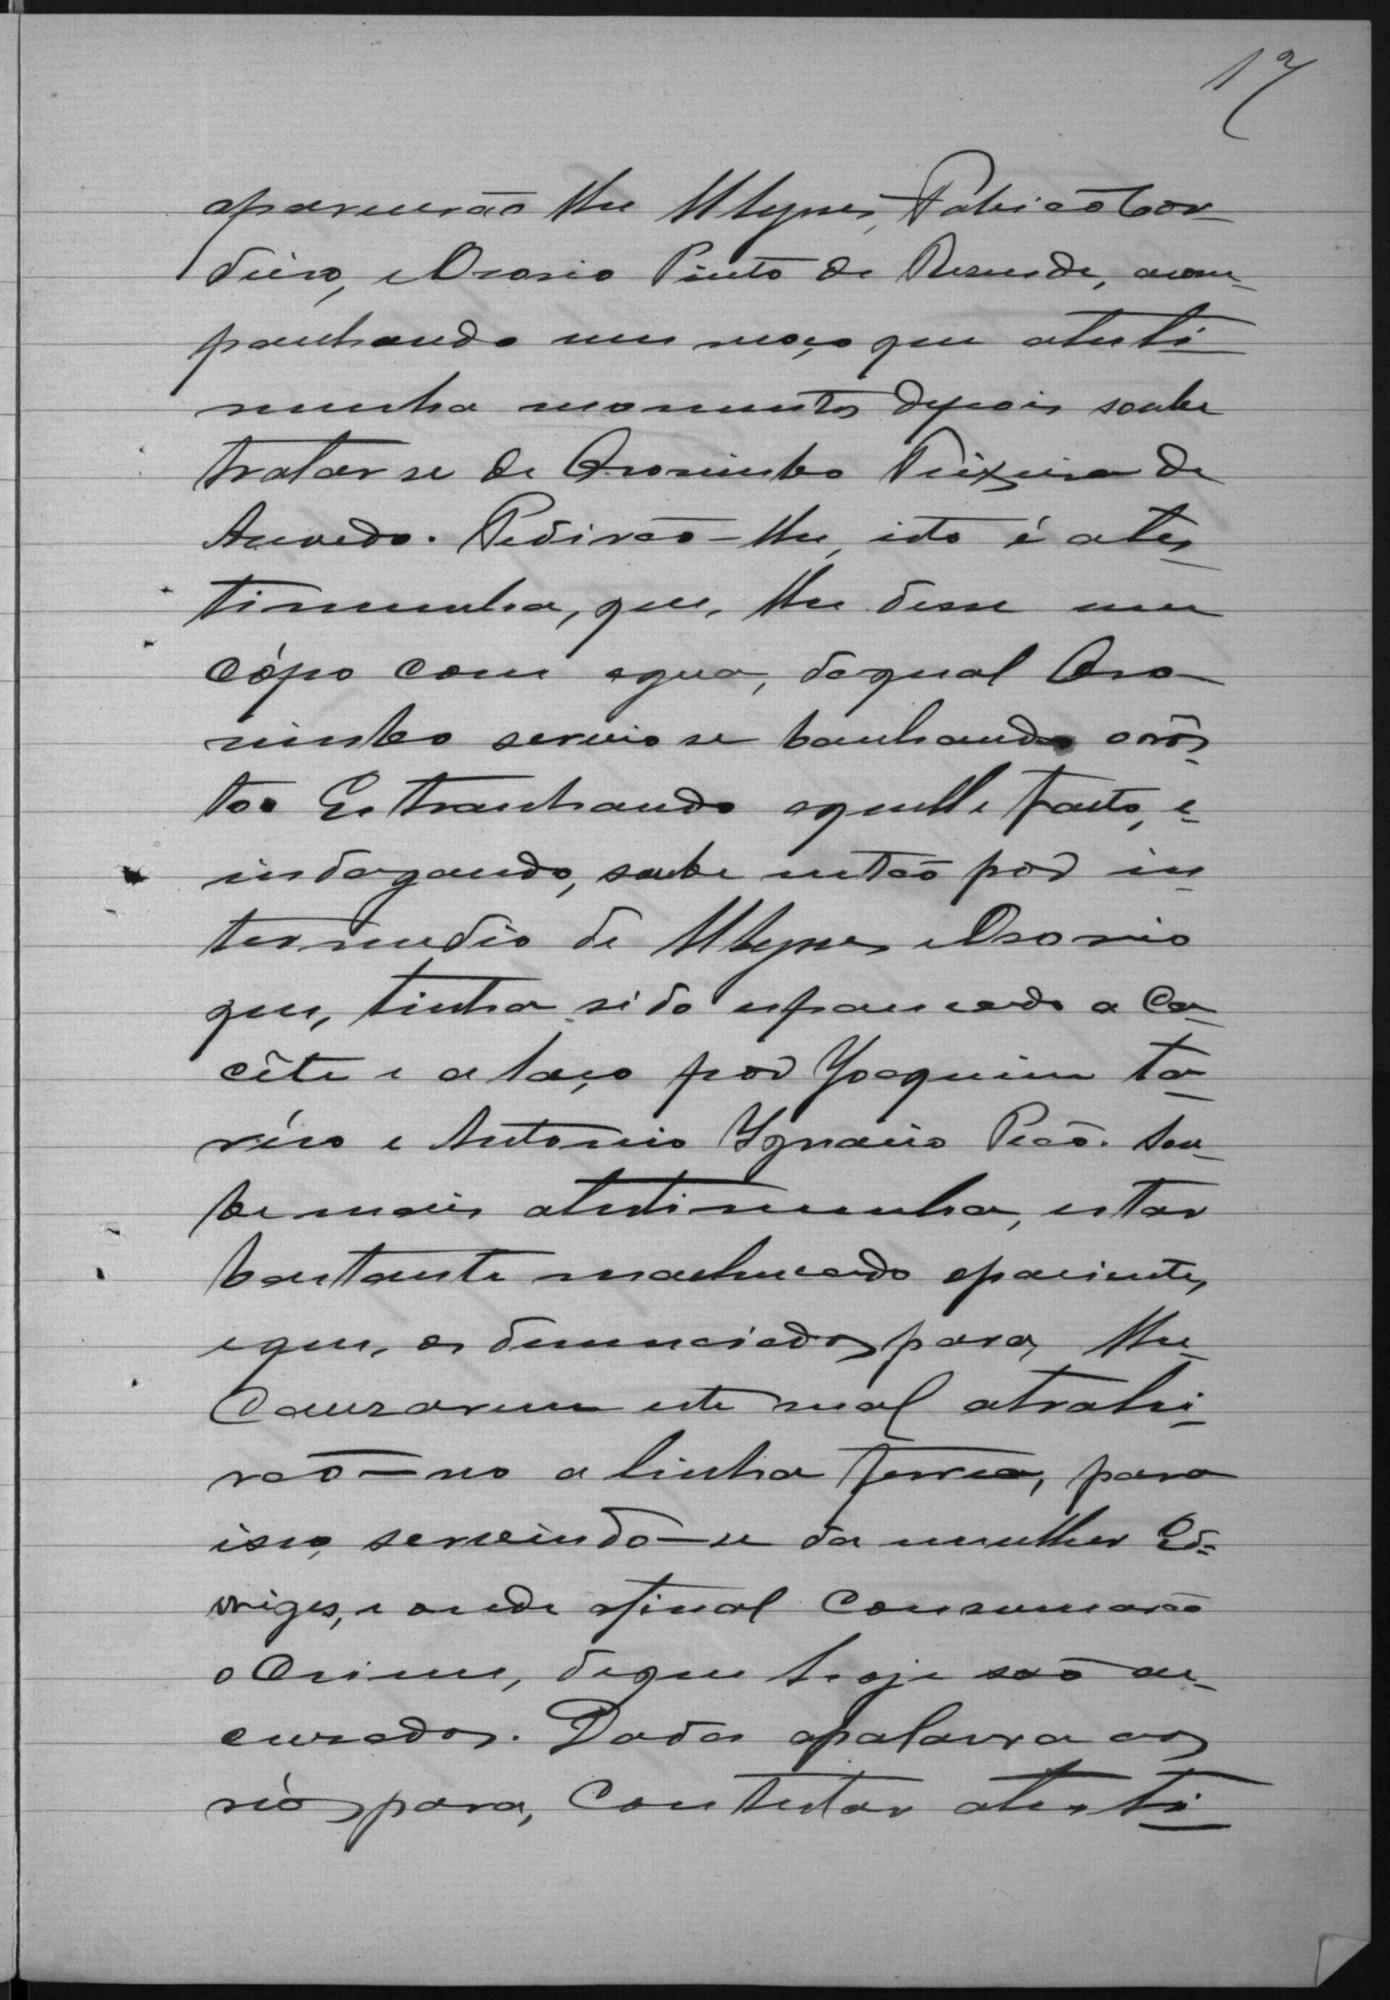 17
aparecerão lhe Ulysses, Fabricio Cor-
deiro, e Osorio Pinto de Resende, acom-
panhando um moço que atesti-
munha momentos depois soube
tratar se de Orosimbo Teixeira de
Asevedo. Pedirão-lhe, isto é ates-
timunha, que, lhe desse um
cópo com agua, doqual Oro-
simbo servio se banhando orôs-
to. Extranhando aquelle facto, e
indagando, soube então por in-
termedio de Ulysses e Osorio
que, tinha sido espancado a ca-
cête e a laço por Joaquim
e Antonio Ygnacio Peão. Sou-
be mais atestimunha, estar
bastante machucado opaciente,
eque, os denunciados para, lhe
causarem este mal atrahi-
rão-no a linha ferrea, para
isso, servindo-se da mulher Ed-
wiges, e onde afinal consumarão
o crime, deque hoje são ac-
cusados. Dada apalavra aos
réos para, contestar atesti-